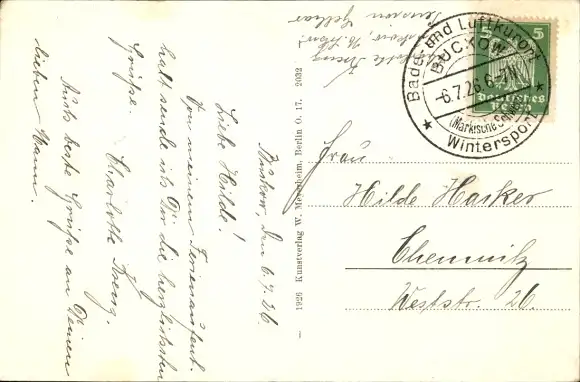 Buckow, den 6.7.26.
Liebe Hilde!
Von meinem Ferienaufent-
halt sende ich Dir die herzlichsten
Grüße. Charlotte
Auch beste Grüße an Deinen
lieben Mann.
— 1926 Kunstverlag W. Meyerheim, Berlin O. 17. 2032
Pension
Bade- und Luftkurort
BUCKOW
-6.7.26.6-7N
(Märkische Schweiz)
Wintersport
5 5
Deutsches Reich
Frau
Hilde Hasker
Chemnitz
Weststr. 26.